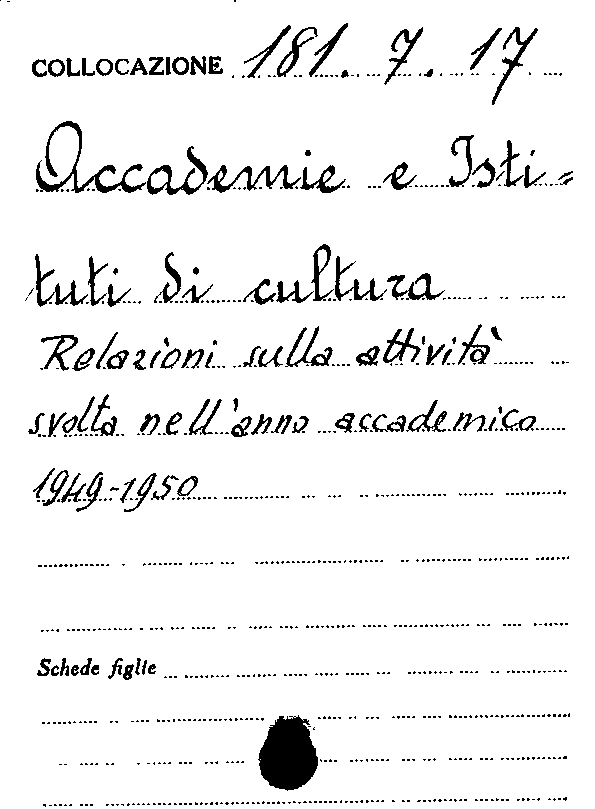 COLLOCAZIONE 181. 7. 17
Accademie e Isti=
tuti di cultura
Relazioni sulla attività
svolta nell'anno accademico
1949-1950
Schede figlie